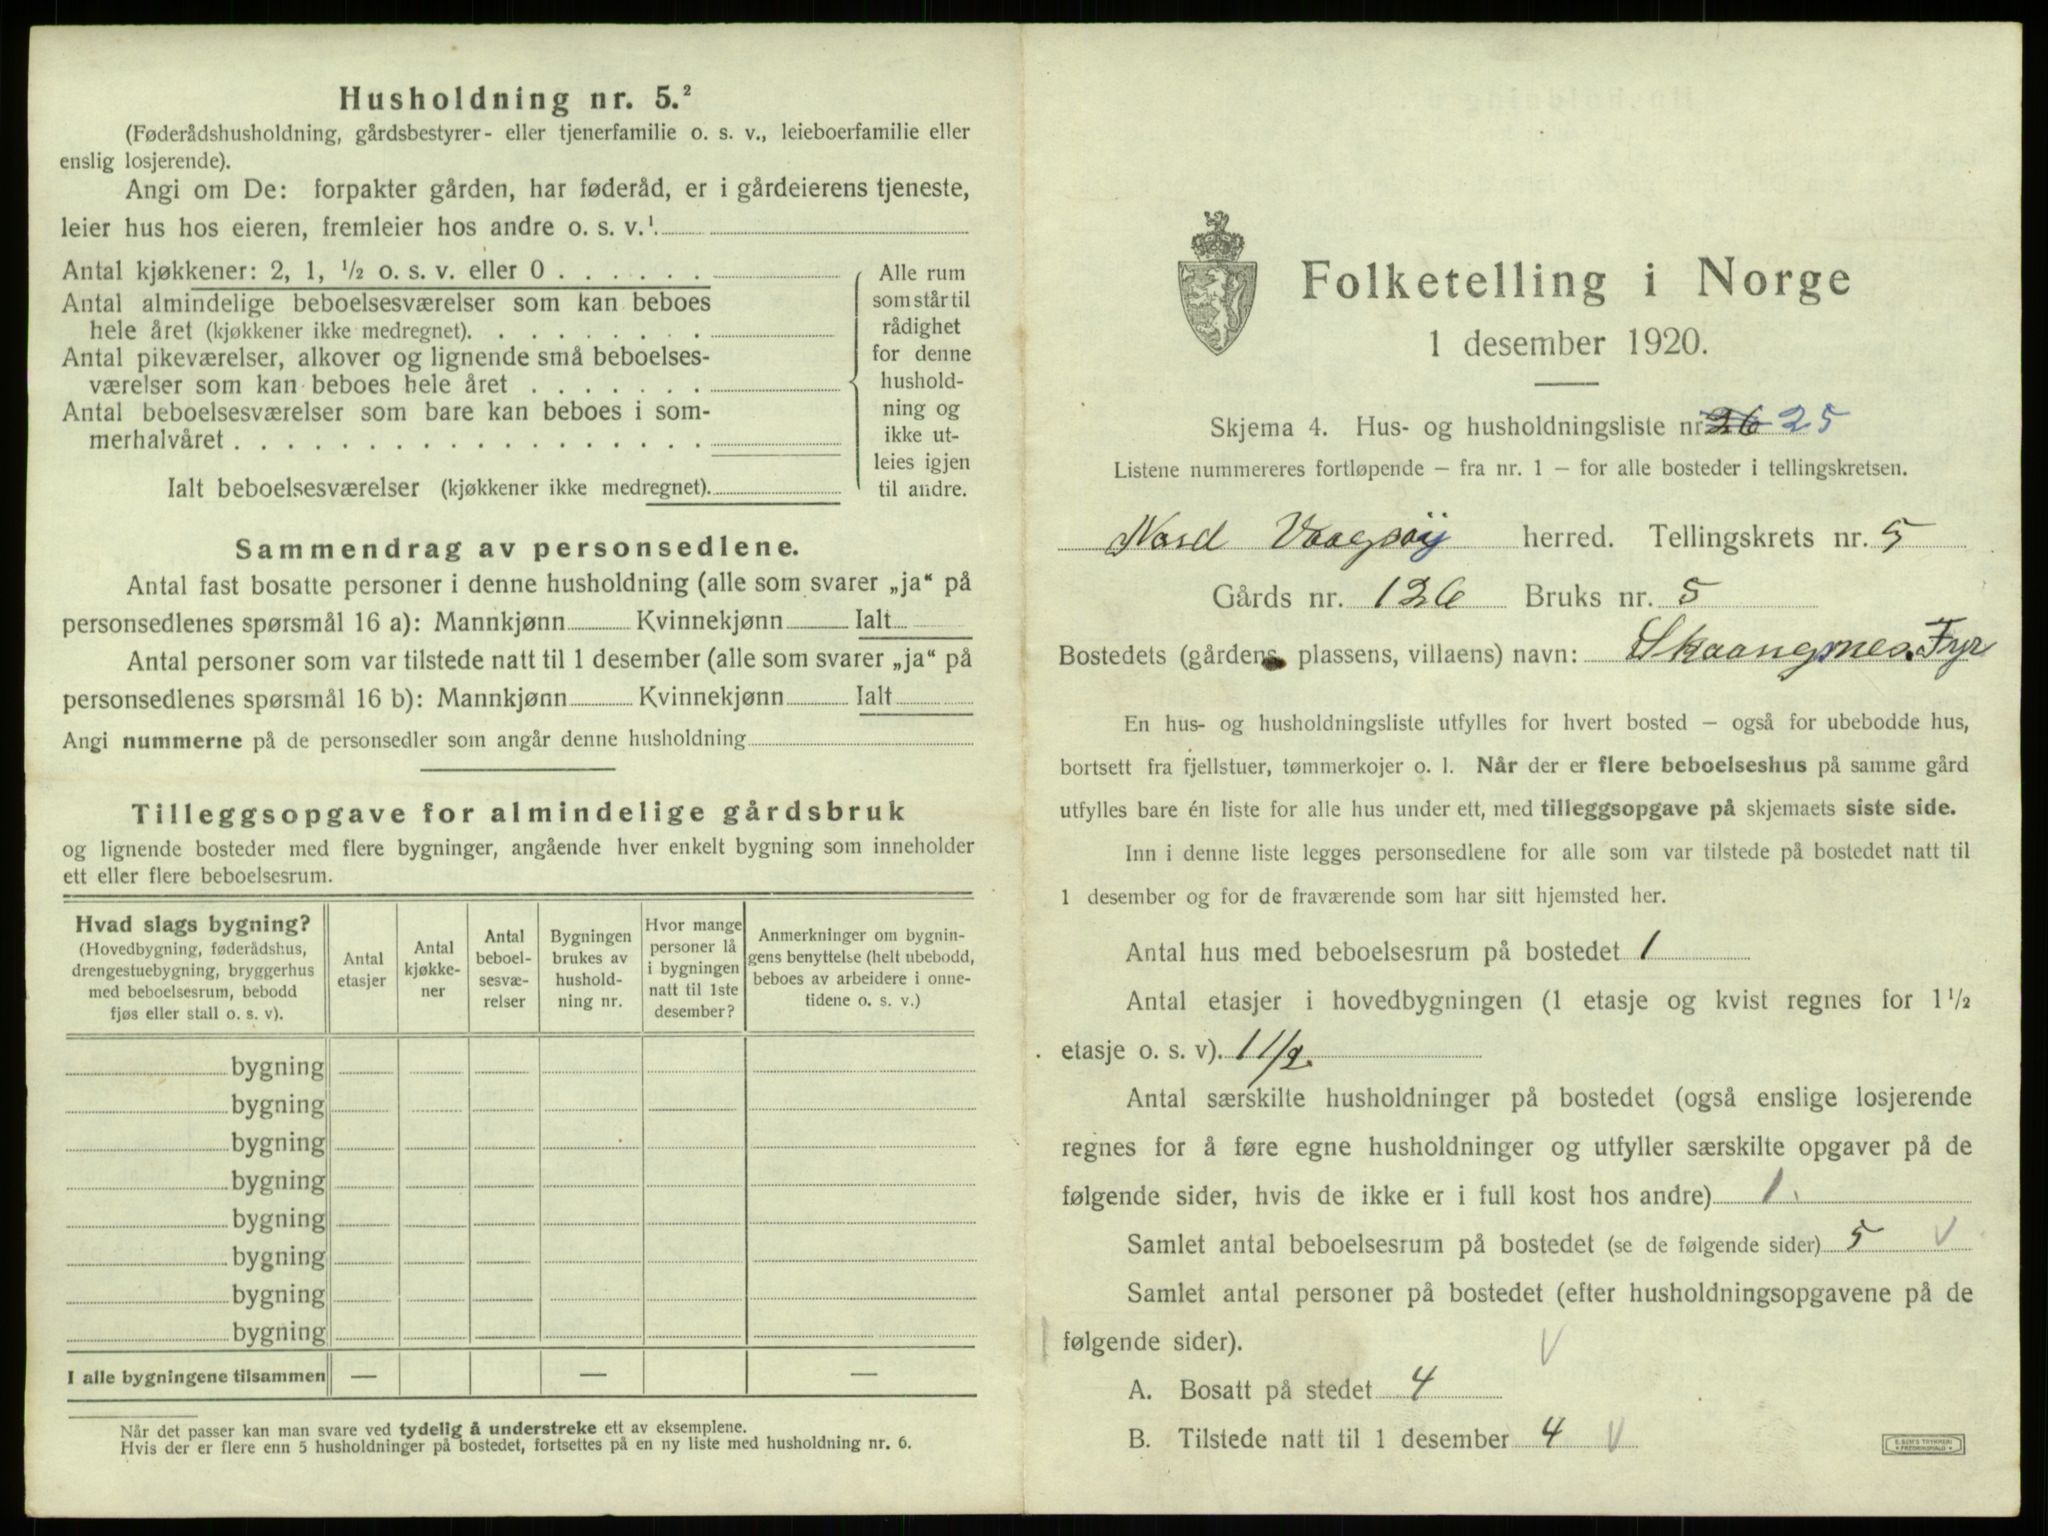 Husholdning nr. 5.²
(Føderådshusholdning, gårdsbestyrer- eller tjenerfamilie o. s. v., leieboerfamilie eller
enslig losjerende).
Angi om De: forpakter gården, har føderåd, er i gårdeierens tjeneste,
leier hus hos eieren, fremleier hos andre o. s. v.¹
Antal kjøkkener: 2, 1, ½ o. s. v. eller 0 . . . . . .
Antal almindelige beboelsesværelser som kan beboes
hele året (kjøkkener ikke medregnet). . . . . . . . .
Antal pikeværelser, alkover og lignende små beboelses-
værelser som kan beboes hele året . . . . . . .
Antal beboelsesværelser som bare kan beboes i som-
merhalvåret . . . . . . . . . . . . . . . . . .
Ialt beboelsesværelser (kjøkkener ikke medregnet).
Alle rum
som står til
rådighet
for denne
hushold-
ning og
ikke ut-
leies igjen
til andre.
Sammendrag av personsedlene.
Antal fast bosatte personer i denne husholdning (alle som svarer „ja“ på
personsedlenes spørsmål 16 a): Mannkjønn Kvinnekjønn Ialt
Antal personer som var tilstede natt til 1 desember (alle som svarer „ja“ på
personsedlenes spørsmål 16 b): Mannkjønn Kvinnekjønn Ialt
Angi nummerne på de personsedler som angår denne husholdning
Tilleggsopgave for almindelige gårdsbruk
og lignende bosteder med flere bygninger, angående hver enkelt bygning som inneholder
ett eller flere beboelsesrum.
Hvad slags bygning?
(Hovedbygning, føderådshus,
drengestuebygning, bryggerhus
med beboelsesrum, bebodd
fjøs eller stall o. s. v).
Antal
etasjer
Antal
kjøkke-
ner
Antal
beboel-
sesvæ-
relser
Bygningen
brukes av
hushold-
ning nr.
Hvor mange
personer lå
i bygningen
natt til 1ste
desember?
Anmerkninger om bygnin-
gens benyttelse (helt ubebodd,
beboes av arbeidere i onne-
tidene o. s. v.)
bygning
bygning
bygning
bygning
bygning
bygning
bygning
bygning
I alle bygningene tilsammen — — —
Når det passer kan man svare ved tydelig å understreke ett av eksemplene.
Hvis der er flere enn 5 husholdninger på bostedet, fortsettes på en ny liste med husholdning nr. 6.
Folketelling i Norge
1 desember 1920.
Skjema 4. Hus- og husholdningsliste nr. 26 25
Listene nummereres fortløpende – fra nr. 1 – for alle bosteder i tellingskretsen.
Nord Vaagsøy herred. Tellingskrets nr. 5
Gårds nr. 126 Bruks nr. 5
Bostedets (gårdens, plassens, villaens) navn: Skaangsnes Fyr
En hus- og husholdningsliste utfylles for hvert bosted – også for ubebodde hus,
bortsett fra fjellstuer, tømmerkojer o. l. Når der er flere beboelseshus på samme gård
utfylles bare én liste for alle hus under ett, med tilleggsopgave på skjemaets siste side.
Inn i denne liste legges personsedlene for alle som var tilstede på bostedet natt til
1 desember og for de fraværende som har sitt hjemsted her.
Antal hus med beboelsesrum på bostedet 1
Antal etasjer i hovedbygningen (1 etasje og kvist regnes for 1 ½
etasje o. s. v). 1 1/2
Antal særskilte husholdninger på bostedet (også enslige losjerende
regnes for å føre egne husholdninger og utfyller særskilte opgaver på de
følgende sider, hvis de ikke er i full kost hos andre) 1.
Samlet antal beboelsesrum på bostedet (se de følgende sider) 5 V
Samlet antal personer på bostedet (efter husholdningsopgavene på de
følgende sider). V
A. Bosatt på stedet 4
B. Tilstede natt til 1 desember 4 V
E. SEM'S TRYKKERI
FREDRIKSHALD